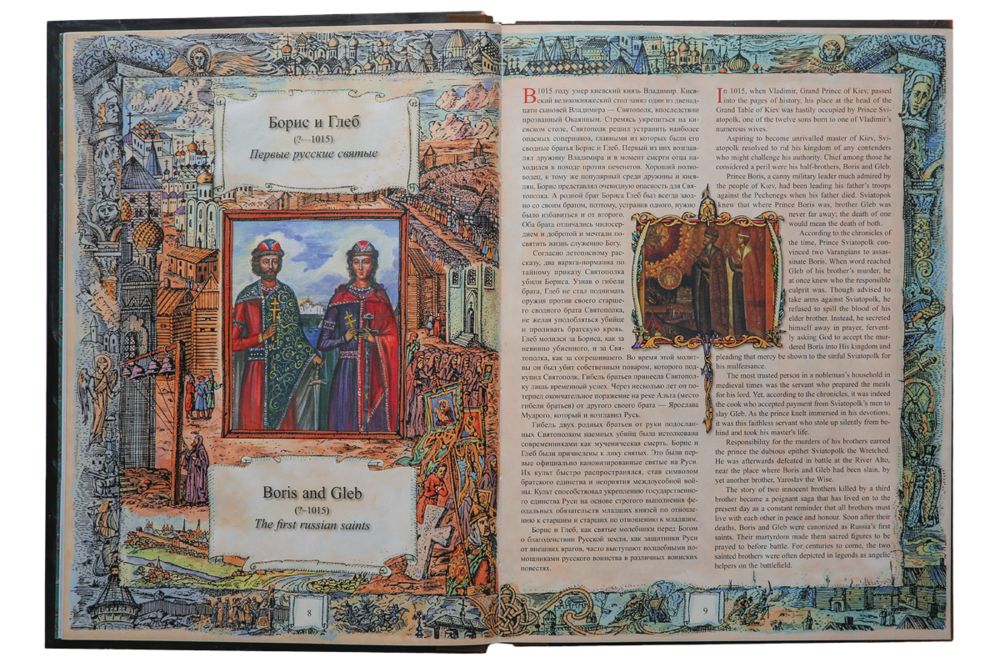 Борис и Глеб
(?—1015)
Первые русские святые
Boris and Gleb
(?–1015)
The first russian saints
8
В 1015 году умер киевский князь Владимир. Киев-
ский великокняжеский стол занял один из двенад-
цати сыновей Владимира — Святополк, впоследствии
прозванный Окаянным. Стремясь укрепиться на ки-
евском столе, Святополк решил устранить наиболее
опасных соперников, главными из которых были его
сводные братья Борис и Глеб. Первый из них возглав-
лял дружину Владимира и в момент смерти отца на-
ходился в походе против печенегов. Хороший полко-
водец, к тому же популярный среди дружины и киев-
лян, Борис представлял очевидную опасность для Свя-
тополка. А родной брат Бориса Глеб был всегда заод-
но со своим братом, поэтому, устранив одного, нужно
было избавиться и от второго.
Оба брата отличались милосер-
дием и добротой и мечтали по-
святить жизнь служению Богу.
Согласно летописному расс-
казу, два варяга-норманна по
тайному приказу Святополка
убили Бориса. Узнав о гибели
брата, Глеб не стал поднимать
оружия против своего старше-
го сводного брата Святополка,
не желая уподобляться убийце
и проливать братскую кровь.
Глеб молился за Бориса, как за
невинно убиенного, и за Свя-
тополка, как за согрешившего. Во время этой молит-
вы он был убит собственным поваром, которого под-
купил Святополк. Гибель братьев принесла Святопол-
ку лишь временный успех. Через несколько лет он по-
терпел окончательное поражение на реке Альта (место
гибели братьев) от другого своего брата — Ярослава
Мудрого, который и возглавил Русь.
Гибель двух родных братьев от руки подослан-
ных Святополком наемных убийц была истолкована
современниками как мученическая смерть. Борис и
Глеб были причислены к лику святых. Это были пер-
вые официально канонизированные святые на Руси.
Их культ быстро распространялся, став символом
братского единства и неприятия междоусобной вой-
ны. Культ способствовал укреплению государственно-
го единства Руси на основе строгого выполнения фе-
одальных обязательств младших князей по отноше-
нию к старшим и старших по отношению к младшим.
Борис и Глеб, как святые молебники перед Богом
о благоденствии Русской земли, как защитники Руси
от внешних врагов, часто выступают волшебными по-
мощниками русского воинства в различных воинских
повестях.
In 1015, when Vladimir, Grand Prince of Kiev, passed
into the pages of history, his place at the head of the
Grand Table of Kiev was hastily occupied by Prince Svi-
atopolk, one of the twelve sons born to one of Vladimir's
numerous wives.
Aspiring to become unrivalled master of Kiev, Svi-
atopolk resolved to rid his kingdom of any contenders
who might challenge his authority. Chief among those he
considered a peril were his half-brothers, Boris and Gleb.
Prince Boris, a canny military leader much admired by
the people of Kiev, had been leading his father's troops
against the Pechenegs when his father died. Sviatopok
knew that where Prince Boris was, brother Gleb was
never far away; the death of one
would mean the death of both.
According to the chronicles of
the time, Prince Sviatopolk con-
vinced two Varangians to assas-
sinate Boris. When word reached
Gleb of his brother's murder, he
at once knew who the responsible
culprit was. Though advised to
take arms against Sviatopolk, he
refused to spill the blood of his
elder brother. Instead, he secreted
himself away in prayer, fervent-
ly asking God to accept the mur-
dered Boris into His kingdom and
pleading that mercy be shown to the sinful Sviatopolk for
his malfeasance.
The most trusted person in a nobleman's household in
medieval times was the servant who prepared the meals
for his lord. Yet, according to the chronicles, it was indeed
the cook who accepted payment from Sviatopolk's men to
slay Gleb. As the prince knelt immersed in his devotions,
it was this faithful servant who stole up silently from be-
hind and took his master's life.
Responsibility for the murders of his brothers earned
the prince the dubious epithet Sviatopolk the Wretched.
He was afterwards defeated in battle at the River Alto,
near the place where Boris and Gleb had been slain, by
yet another brother, Yaroslav the Wise.
The story of two innocent brothers killed by a third
brother became a poignant saga that has lived on to the
present day as a constant reminder that all brothers must
live with each other in peace and honour. Soon after their
deaths, Boris and Gleb were canonized as Russia's first
saints. Their martyrdom made them sacred figures to be
prayed to before battle. For centuries to come, the two
sainted brothers were often depicted in legends as angelic
helpers on the battlefield.
9